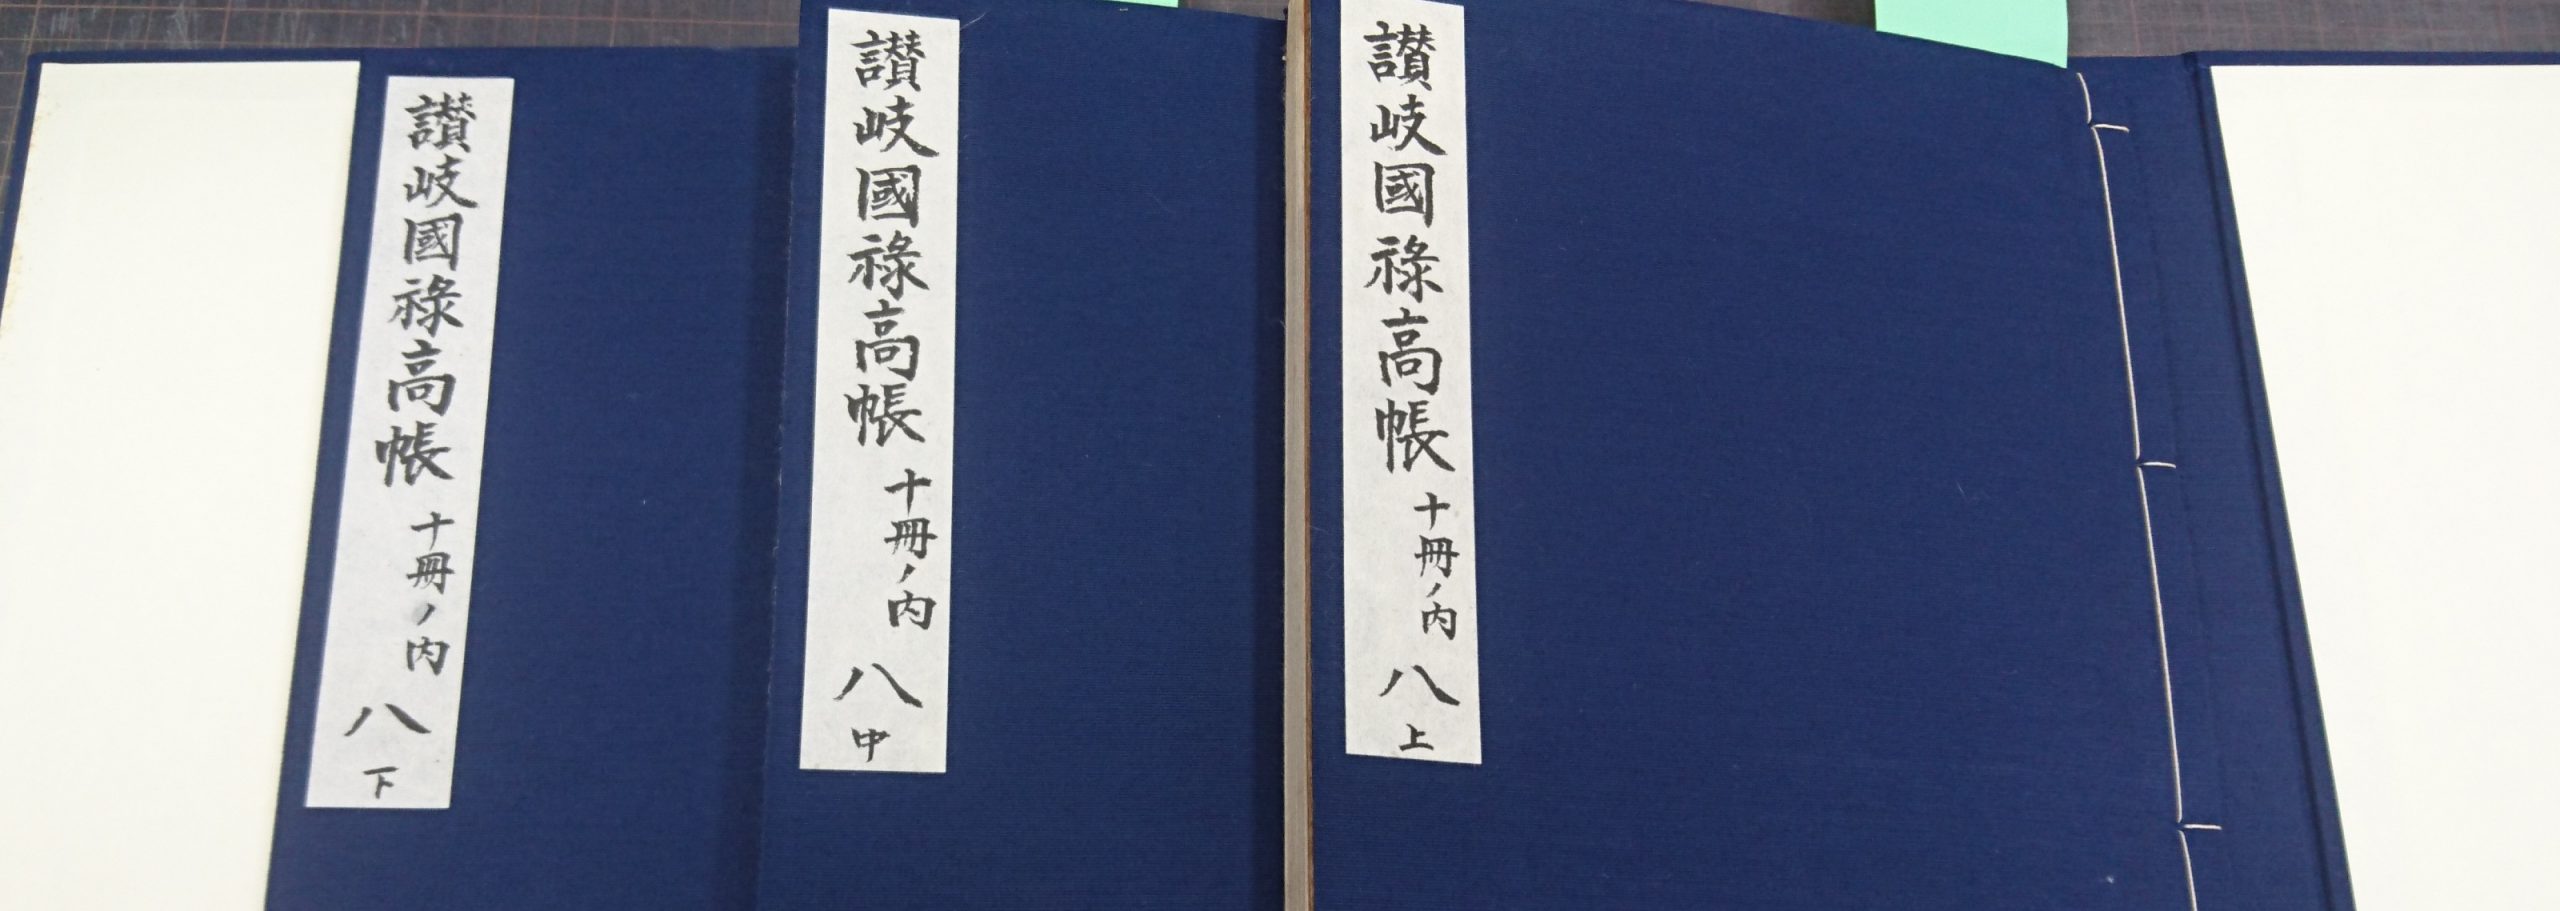 讃岐國祿高帳 十冊ノ内 八 上
讃岐國祿高帳 十冊ノ内 八 中
讃岐國祿高帳 十冊ノ内 八 下